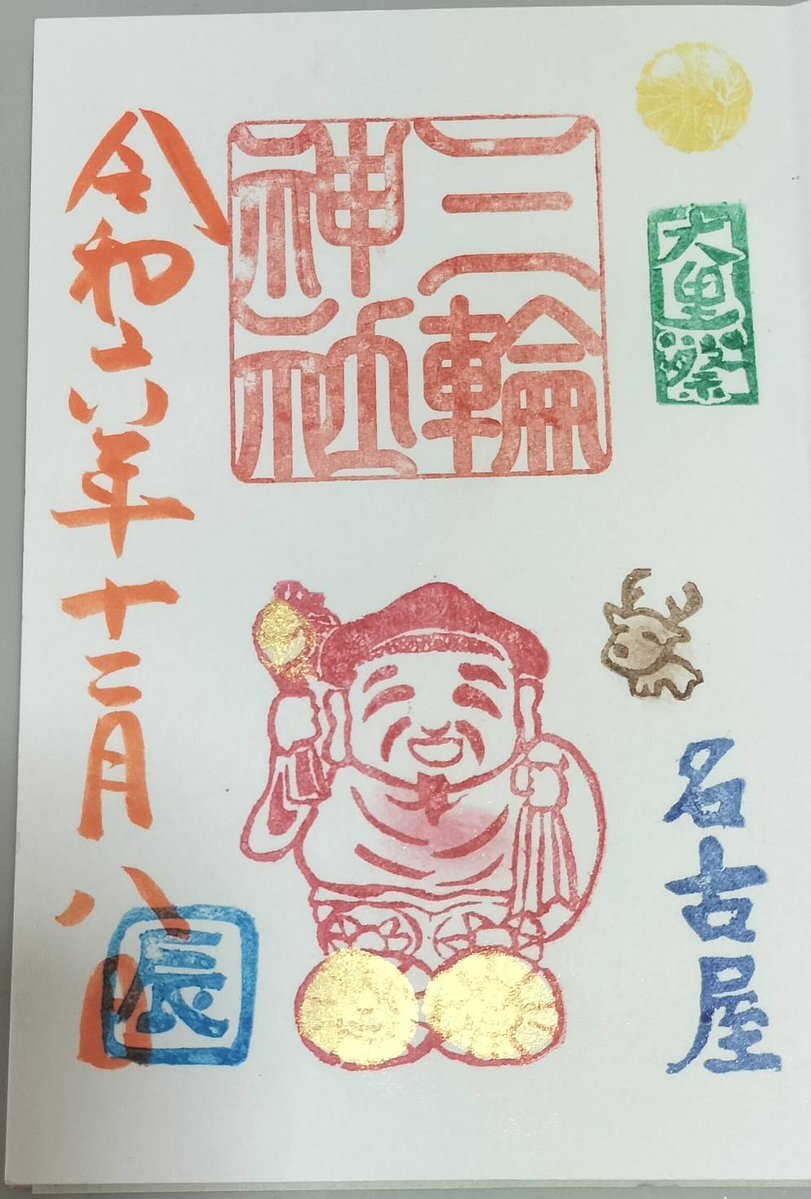 大黒祭
名古屋
三輪
神社
令和六年十二月八日
辰